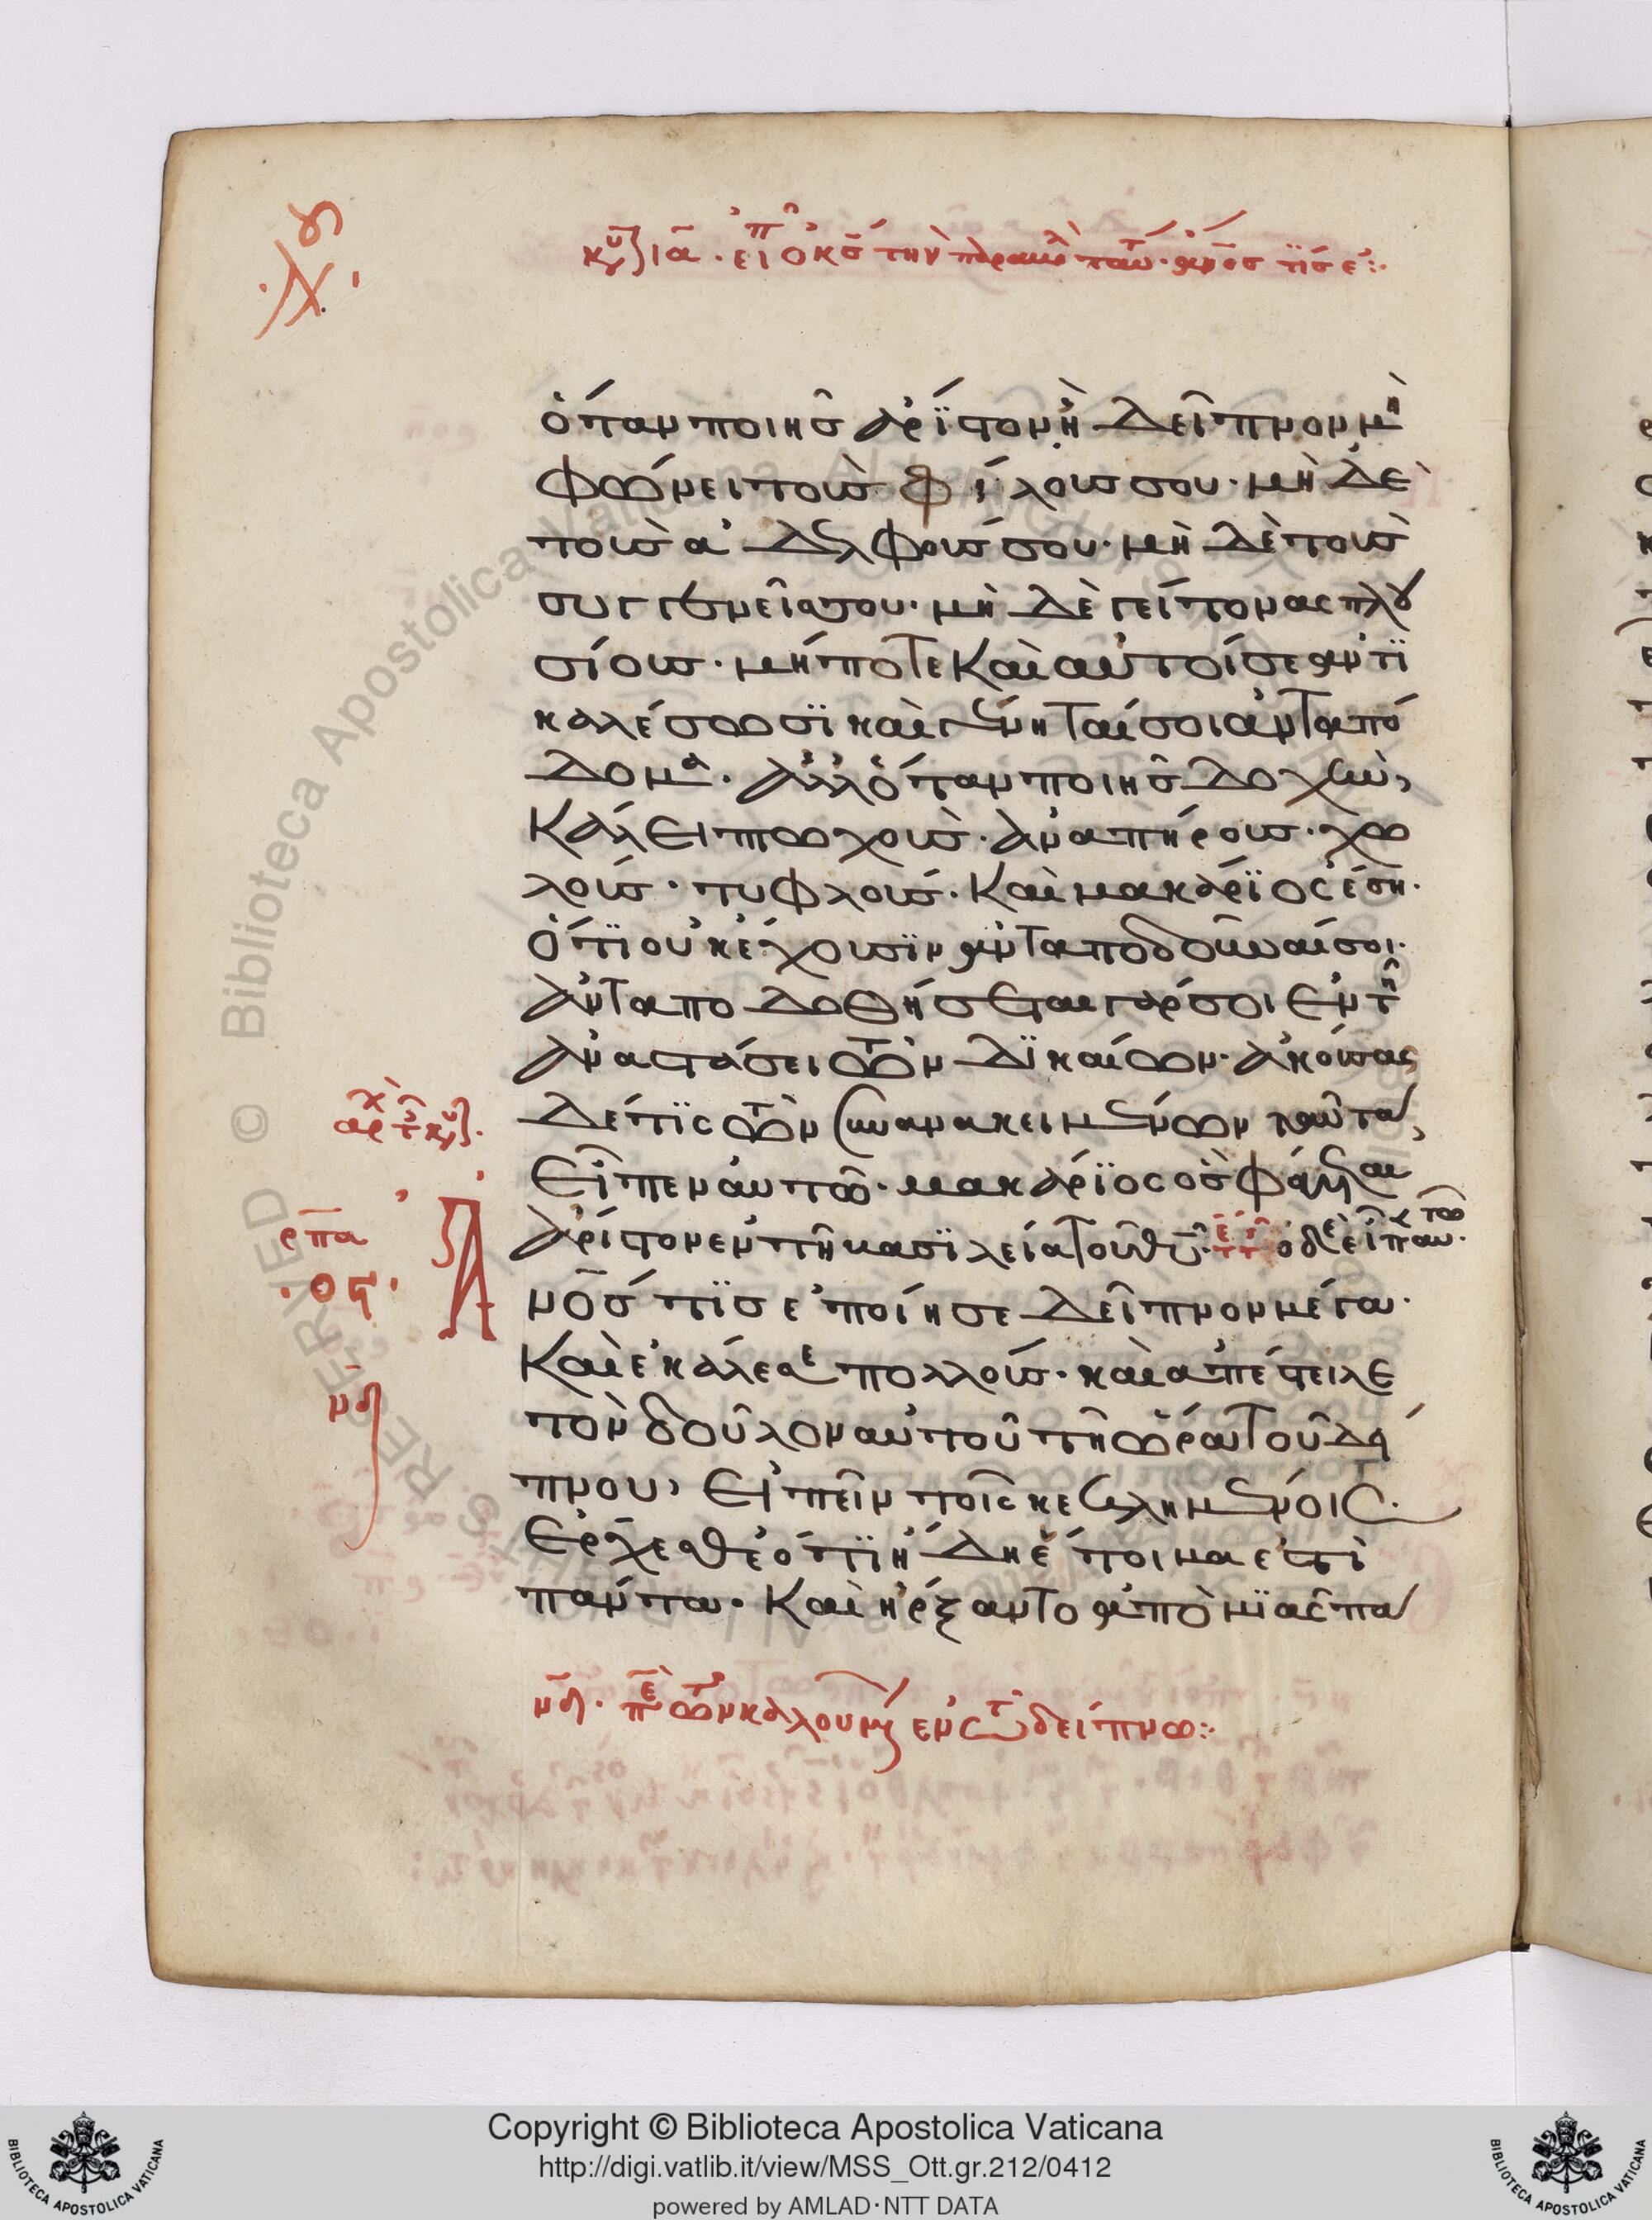 κυ ια. εἶπεν ὁ κς τὴν παραβολὴν ταύτην. ἀνος τὶς ε:
ὅταν ποιῆς ἄρϊστον ἢ δεῖπνον μὴ
φώνει τοὺς φίλους σου. μὴ δὲ
τοὺς ἀδελφούς σου. μὴ δὲ τοὺς
συγγενεῖς σου. μὴ δὲ γείτονας πλου
σίους. μήποτε καὶ αὐτοί σε ἀντϊ
καλέσωσϊ καὶ γένηταί σοι ἀνταπό
δομα. ἀλλ' ὅταν ποιῆς δοχὴν,
κάλει πτωχοὺς. ἀναπήρους. χω
λούς. τυφλούς. καὶ μακάρϊος ἔση.
ὅτϊ οὐκ ἔχουσϊν ἀνταποδοῦναί σοι.
ἀνταποδοθήσεται γάρ σοι ἐν τῆ
ἀναστάσει τῶν δϊκαίων. ἀκούσας
δέ τϊς τῶν συνανακειμένων ταῦτα,
εἶπεν αὐτῶ. μακάρϊος ὃς φάγεται
ἄριστον ἐν τῆ βασϊλεία τοῦ θυ. ὁ δὲ εἶπεν αὐτῶ.
αρχὴ τῆς κυ.
ρπα
Ἄνος τϊς ἐποίησε δεῖπνον μέγα.
καὶ ἐκάλεσε πολλούς. καὶ ἀπέστειλε
νδ
τὸν δοῦλον αὐτοῦ τῆ ὥρα τοῦ δεί
πνου, εἰπεῖν τοῖς κεκλημένοις.
ἔρχεσθε ὅτϊ ἤδη ἕτοιμα ἐστὶ
πάντα. καὶ ἤρξαντο ἀπὸ μϊᾶς πα
νδ. περὶ τῶν καλουμένων ἐν τῶ δείπνω:
Copyright © Biblioteca Apostolica Vaticana
http://digi.vatlib.it/view/MSS_Ott.gr.212/0412
powered by AMLAD·NTT DATA
BIBLIOTECA APOSTOLICA VATICANA
BIBLIOTECA APOSTOLICA VATICANA